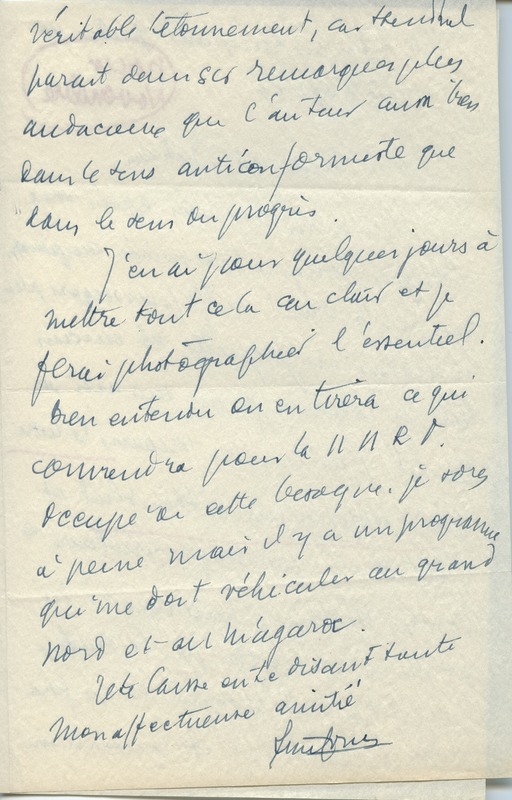 véritable étonnement, car Stendhal
paraît dans ses remarques plus
audacieux que l'auteur aussi bien
dans le sens anticonformiste que
dans le sens du progrès.
J'en ai pour quelques jours à
mettre tout cela au clair et je
ferai photographier l'essentiel.
Bien entendu on en tirera ce qui
conviendra pour la N N R F.
occupé de cette besogne. je sors
à peine mais il y a un programme
qui me doit véhiculer au grand
nord et au Niagara.
Je te laisse en te disant toute
mon affectueuse amitié